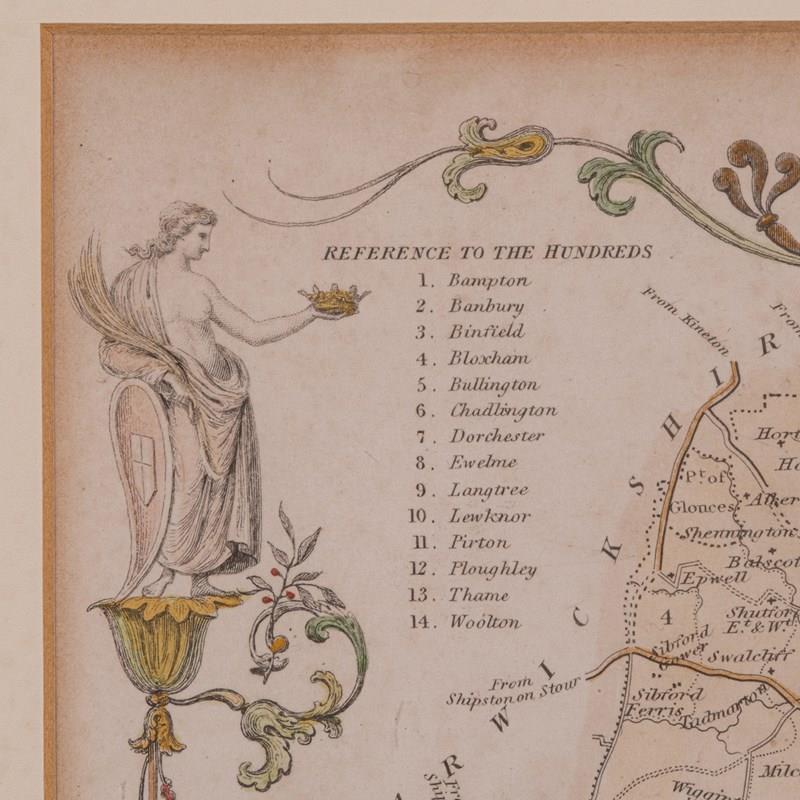 REFERENCE TO THE HUNDREDS
1. Bampton
2. Banbury
3. Binfield
4. Bloxham
5. Bullington
6. Chadlington
7. Dorchester
8. Ewelme
9. Langtree
10. Lewknor
11. Pirton
12. Ploughley
13. Thame
14. Woolton
From Kineton
WARWICKSHIR
Pt. of
Glouces
Shennington
Balscot
Epwell
4
Shutford
Et. & Wt.
Sibford
Gower
Swalcliff
From
Shipston on Stour
Sibford
Ferris
Tadmarton
Milc
Wiggin